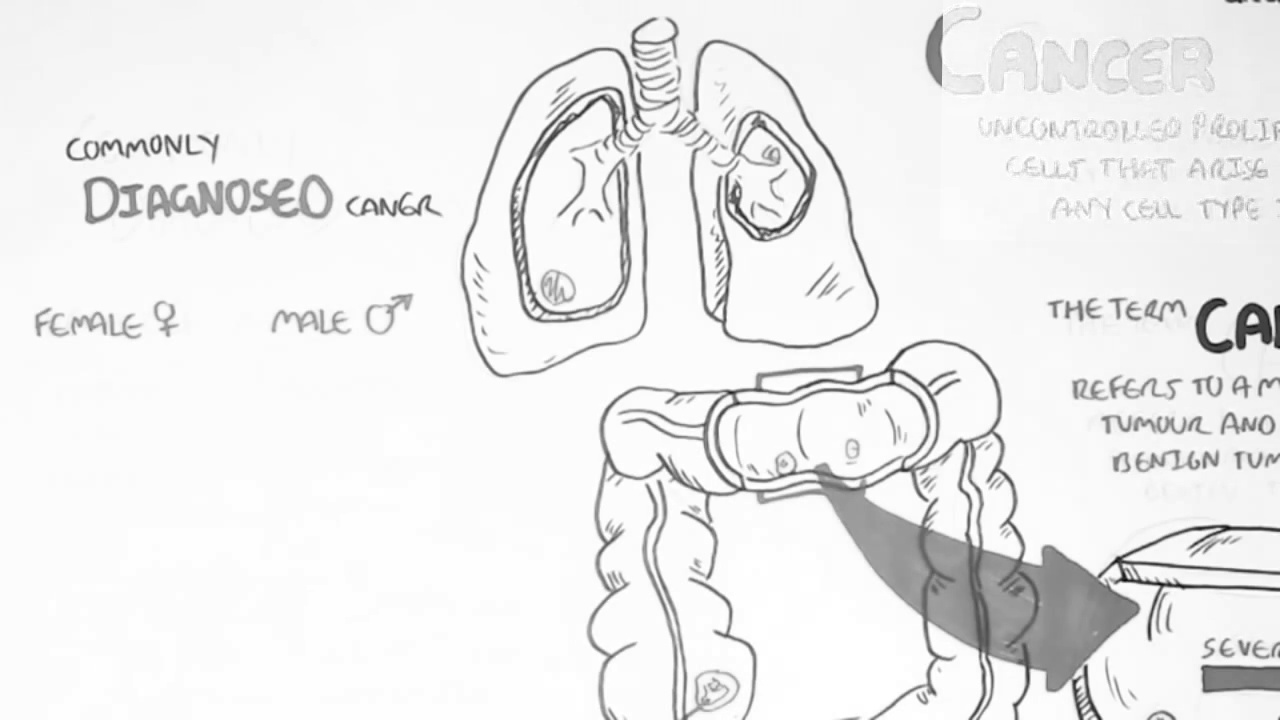 COMMONLY
DIAGNOSED CANCR
FEMALE ♀ MALE ♂
CANCER
UNCONTROLLED
CELLS THAT ARISE
ANY CELL TYPE
THE TERM
REFERS TO A
TUMOUR AND
BENIGN